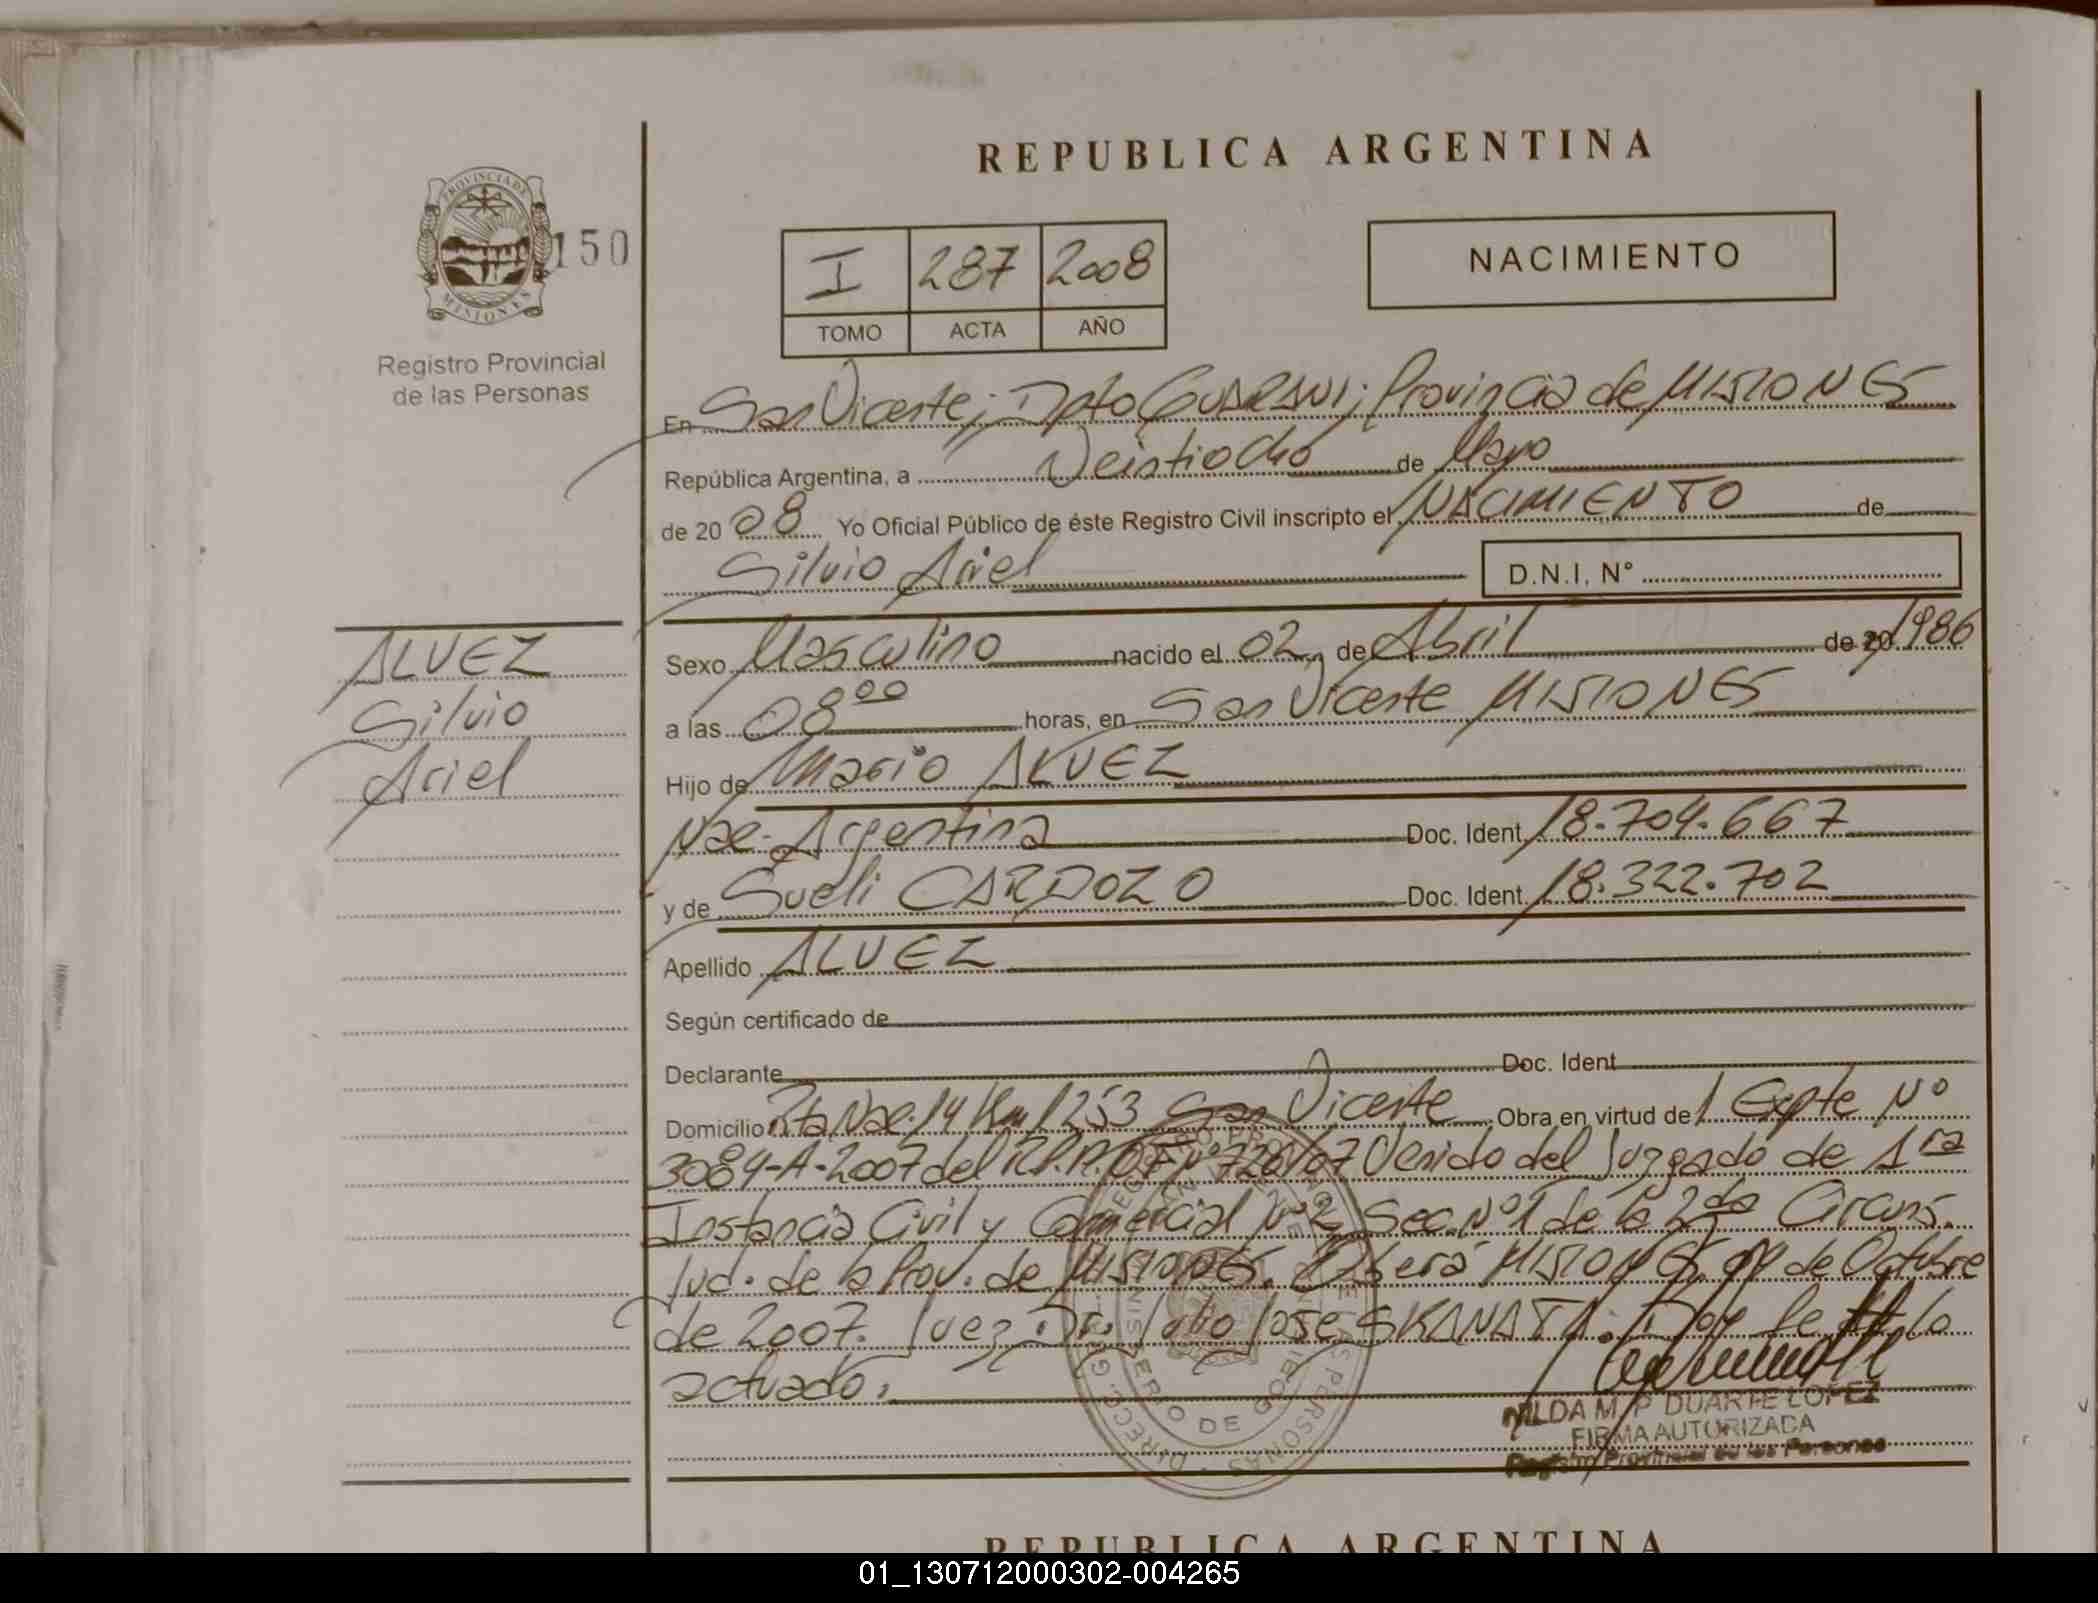 REPUBLICA ARGENTINA
PROVINCIA DE
MISIONES
150
Registro Provincial
de las Personas
I 287 2008
TOMO ACTA AÑO
NACIMIENTO
En San Vicente; Dpto GUARANI; Provincia de MISIONES
República Argentina, a Veintiocho de Mayo
de 20 08 Yo Oficial Público de éste Registro Civil inscripto el NACIMIENTO de
Silvio Ariel D.N.I. N°
ALVEZ
Silvio
Ariel
Sexo Masculino nacido el 02 de Abril de 20 1986
a las 08 00 horas, en San Vicente MISIONES
Hijo de Mario ALVEZ
Nac. Argentina Doc. Ident. 18.704.667
y de Sueli CARDOZO Doc. Ident. 18.322.702
Apellido ALVEZ
Según certificado de
Declarante Doc. Ident
Domicilio Rta Nac. 14 Km 1253 San Vicente Obra en virtud del Expte Nº
3084-A-2007 del R.P.P. OF Nº 726/07 Venido del Juzgado de 1ra
Instancia Civil y Comercial Nº 2 Sec. Nº 1 de la 2da Circuns.
Jud. de la Prov. de MISIONES. Oberá MISIONES, de Octubre
de 2007. Juez Dr. José SKANATA. Doy fe de lo
actuado.
DUARTE LOPEZ
FIRMA AUTORIZADA
Registro Provincial de las Personas
REPUBLICA ARGENTINA
01_130712000302-004265